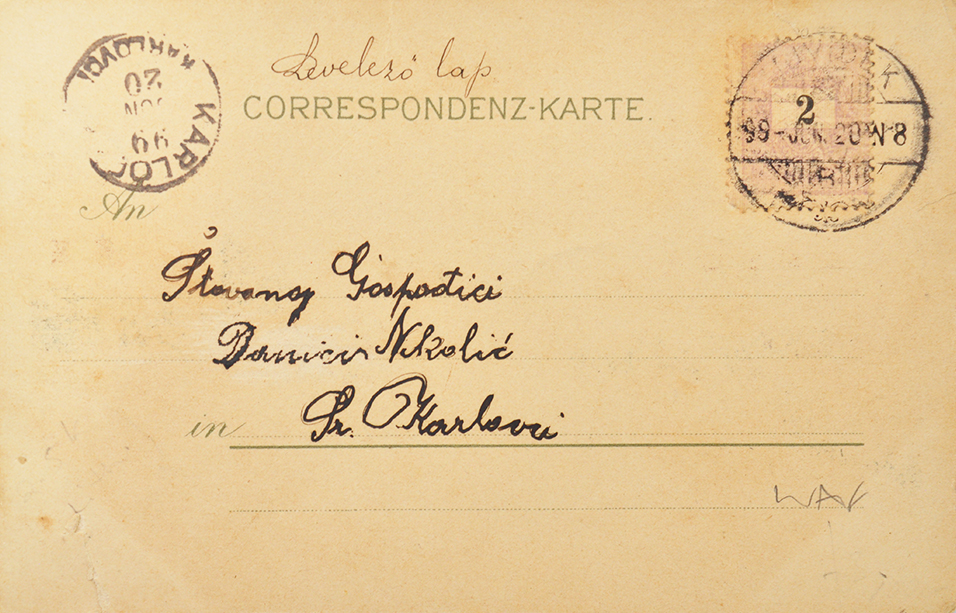 Levelező lap
CORRESPONDENZ-KARTE.
KARLOVCI
20
JUN
99
KARLO
UJVIDÉK
2
99-JUN. 20 N 8
An
Štovanoj Gospođici
Danici Nikolić
in Sr. Karlovci